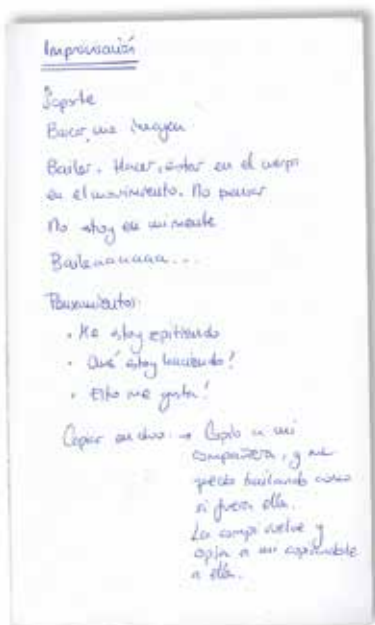 Improvisación
Soporte
Buscar una imagen
Bailar. Hacer, estar en el cuerpo
en el movimiento. No pensar
No estoy en mi mente
Bailaaaaaaa...
Pensamientos:
• Me estoy repitiendo
• Qué estoy haciendo!
• Esto me gusta!
Copiar en duo: → Copio a mi
compañera, y me
quedo bailando como
si fuera ella.
La compi vuelve y
copia a mi copiándole
a ella.